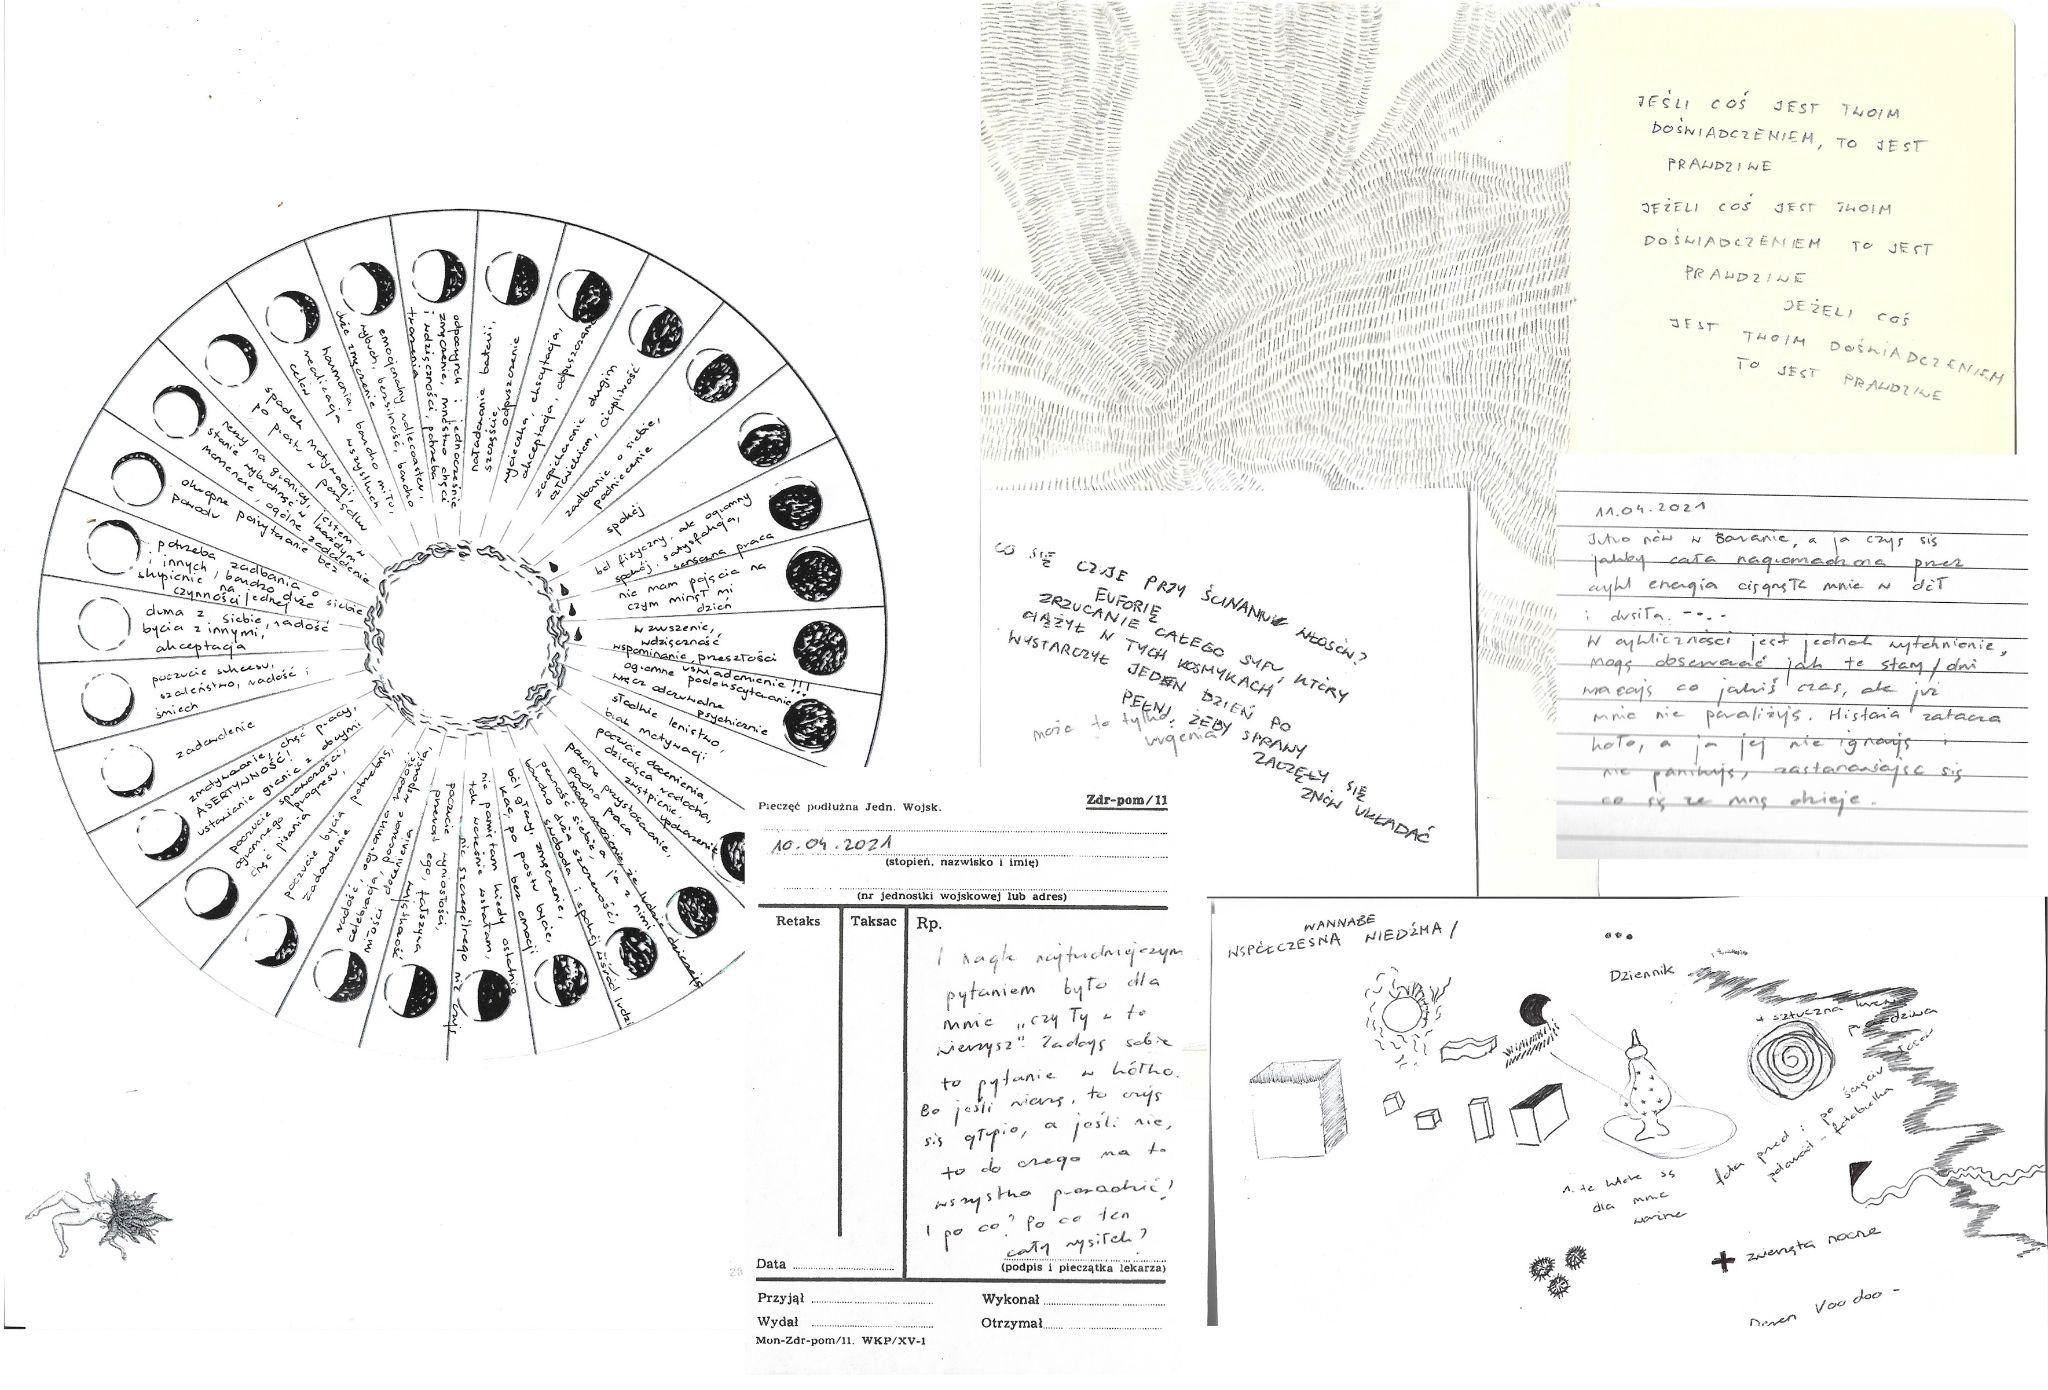 odpoczynek i jednocześnie
zmęczenie, mnóstwo chęci
i wdzięczności, potrzeba
tworzenia
naładowanie baterii,
szczęście,
odpuszczenie
wycieczka, ekscytacja,
akceptacja, odpuszczanie
zaopiekowanie drugim
człowiekiem, cierpliwość
zadbanie o siebie,
podniecenie
spokój
ból fizyczny, ale ogromny
spokój i satysfakcja,
sensowna praca
nie mam pojęcia na
czym minął mi
dzień
wzruszenie,
wdzięczność
wspominanie przeszłości
uświadomienie!!!
ogromne podekscytowanie,
wręcz odczuwalne
psychicznie
słodkie lenistwo,
brak motywacji
poczucie docenienia,
dziecięca radocha,
zwątpienie
poranne
pewność siebie, a
duża szczerość,
bardzo swoboda i spokój wśród ludzi
ból głowy, zmęczenie,
kac, po prostu bycie,
bez emocji
nie pamiętam kiedy ostatnio
tak wcześnie wstałam,
nic szczególnego nie czuję
poczucie wyniosłości,
przerost ego, fałszywa
wyjątkowość
radość, ogromna radość,
celebracja, poczucie wsparcia,
miłości docenienia
poczucie bycia potrzebną,
zadowolenie
poczucie sprawczości,
ogromnego progresu,
chęć pisania
zmotywowanie, chęć pracy,
ASERTYWNOŚĆ!
ustawianie granic z obcymi
zadowolenie
poczucie sukcesu,
szaleństwo, radość i
śmiech
duma z siebie, radość
bycia z innymi,
akceptacja
potrzeba zadbania o siebie
i innych, bardzo duże
skupienie na jednej
czynności
okropne poirytowanie bez
powodu
nerwy na granicy, jestem w
stanie wybuchnąć w każdym
momencie, ogólne zadbanie
spadek motywacji,
po prostu w porządku
harmonia, bardzo miło,
realizacja wszystkich
celów
emocjonalny rollercoaster,
wybuch, bezsilność, bardzo
duże zmęczenie
JEŚLI COŚ JEST TWOIM
DOŚWIADCZENIEM, TO JEST
PRAWDZIWE
JEŻELI COŚ JEST TWOIM
DOŚWIADCZENIEM TO JEST
PRAWDZIWE
JEŻELI COŚ
JEST TWOIM DOŚWIADCZENIEM
TO JEST PRAWDZIWE
CO SIĘ CZUJE PRZY ŚCINANIU WŁOSÓW?
EUFORIĘ
ZRZUCANIE CAŁEGO SYFU, KTÓRY
CIĄŻYŁ W TYCH KOSMYKACH
WYSTARCZYŁ JEDEN DZIEŃ PO
PEŁNI, ŻEBY SPRAWY
ZACZĘŁY SIĘ
ZNÓW UKŁADAĆ
może to tylko
urojenia
11.04.2021
Jutro nów w Baranie, a ja czuję się
jakby cała nagromadzona przez
cykl energia ciągnęła mnie w dół
i dusiła. -..
W cykliczności jest jednak wytchnienie,
mogę obserwować jak te stany/dni
wracają co jakiś czas, ale już
mnie nie paraliżują. Historia zatacza
koło, a ja jej nie ignoruję i
nie panikuję, zastanawiając się
co się ze mną dzieje.
Pieczęć podłużna Jedn. Wojsk.
Zdr-pom/11
10.04.2021
(stopień, nazwisko i imię)
(nr jednostki wojskowej lub adres)
Retaks
Taksac
Rp.
I nagle najtrudniejszym
pytaniem było dla
mnie „czy Ty w to
wierzysz". Zadaję sobie
to pytanie w kółko.
Bo jeśli wierzę, to czuję
się głupio, a jeśli nie,
to do czego ma to
wszystko prowadzić?
I po co? Po co ten
cały wysiłek?
Data
(podpis i pieczątka lekarza)
Przyjął
Wykonał
Wydał
Otrzymał
Mon-Zdr-pom/11. WKP/XV-1
WANNABE
WSPÓŁCZESNA WIEDŹMA /
Dziennik
+ sztuczna
prawdziwa
foto przed i po ścięciu
1. te które są
dla mnie
ważne
+ zwierzęta nocne
Voodoo -